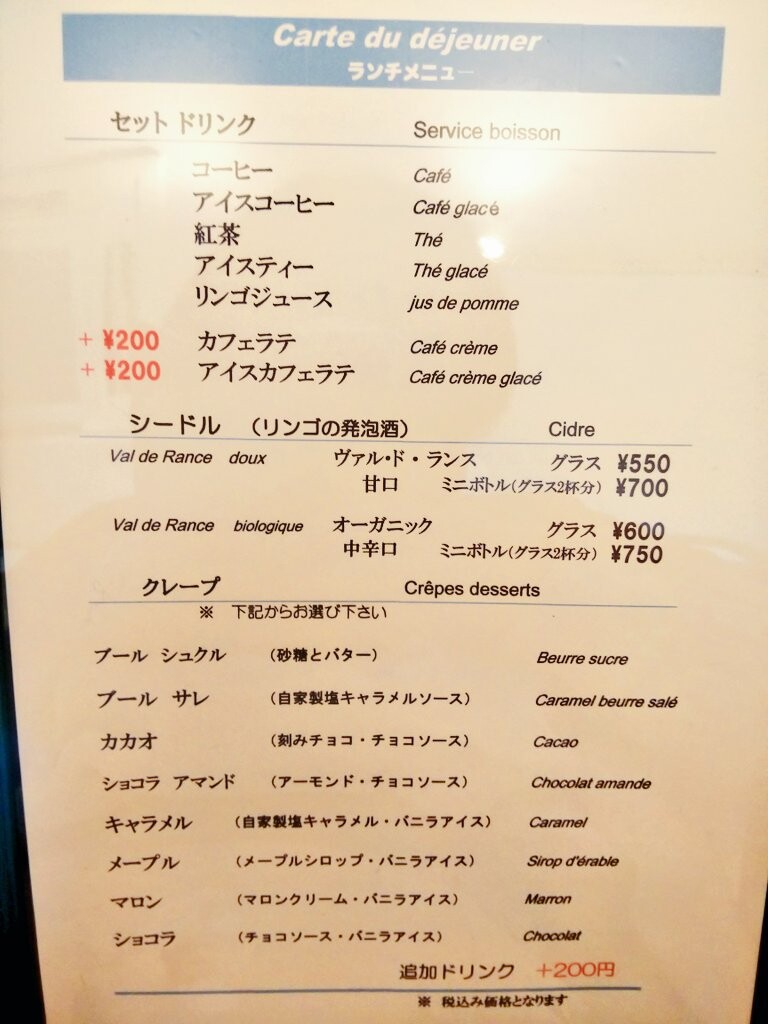 Carte du déjeuner
ランチメニュー
セット ドリンク Service boisson
コーヒー Café
アイスコーヒー Café glacé
紅茶 Thé
アイスティー Thé glacé
リンゴジュース jus de pomme
+ ¥200 カフェラテ Café crème
+ ¥200 アイスカフェラテ Café crème glacé
シードル （リンゴの発泡酒） Cidre
Val de Rance doux ヴァル・ド・ランス グラス ¥550
甘口 ミニボトル(グラス2杯分) ¥700
Val de Rance biologique オーガニック グラス ¥600
中辛口 ミニボトル(グラス2杯分) ¥750
クレープ Crêpes desserts
※ 下記からお選び下さい
ブール シュクル （砂糖とバター） Beurre sucre
ブール サレ （自家製塩キャラメルソース） Caramel beurre salé
カカオ （刻みチョコ・チョコソース） Cacao
ショコラ アマンド （アーモンド・チョコソース） Chocolat amande
キャラメル （自家製塩キャラメル・バニラアイス） Caramel
メープル （メープルシロップ・バニラアイス） Sirop d'érable
マロン （マロンクリーム・バニラアイス） Marron
ショコラ （チョコソース・バニラアイス） Chocolat
追加ドリンク +200円
※ 税込み価格となります